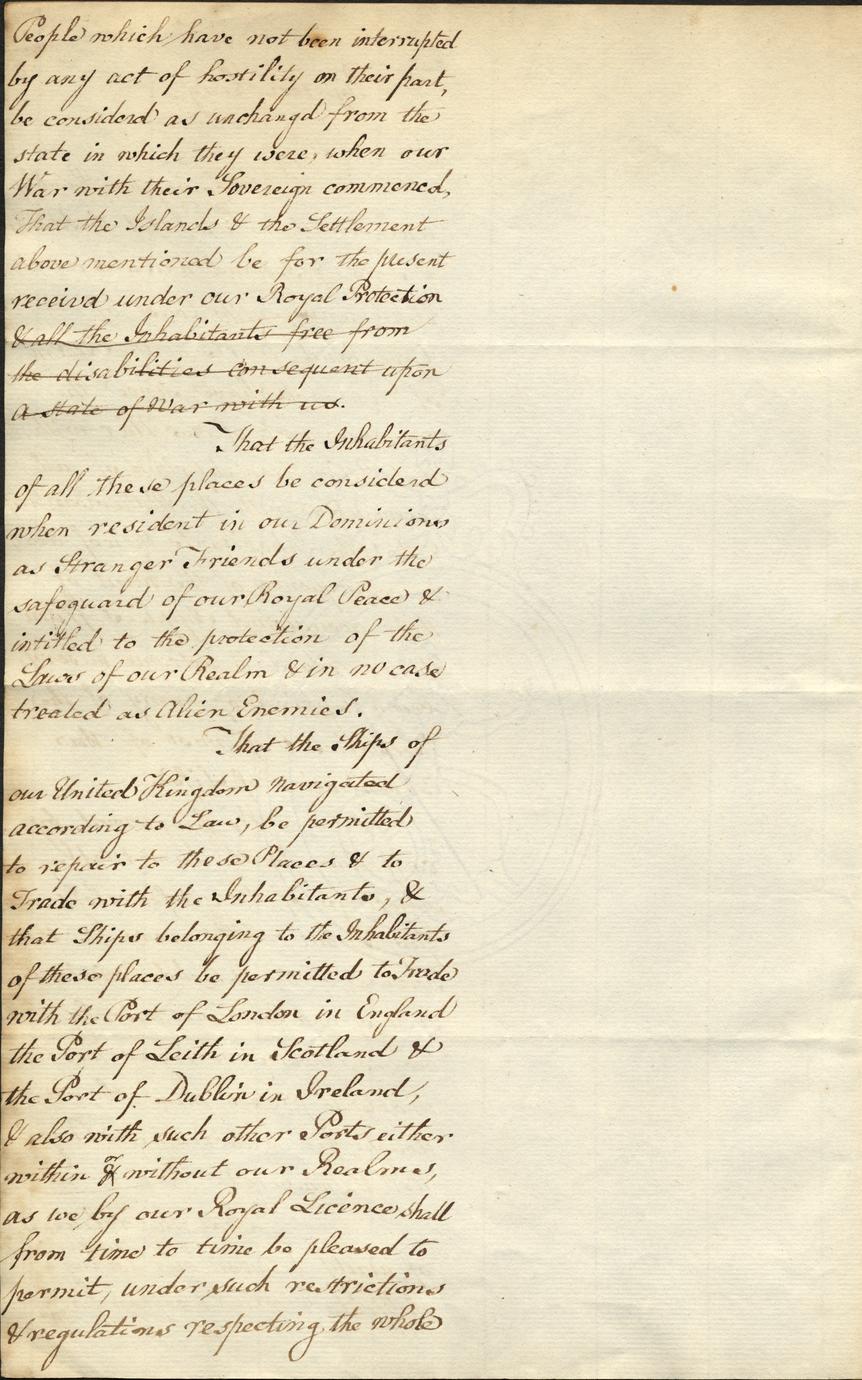 People which have not been interrupted
by any act of hostility on their part,
be considerd as unchangd from the
state in which they were, when our
War with their Sovereign commencd,
That the Islands & the Settlement
above mentioned be for the present
receivd under our Royal Protection
& all the Inhabitants free from
the disabilities consequent upon
a state of War with us.
That the Inhabitants
of all these places be considerd
when resident in our Dominions
as Stranger Friends under the
safeguard of our Royal Peace &
intitled to the protection of the
Laws of our Realm & in no case
treated as Alien Enemies.
That the Ships of
our United Kingdom navigated
according to Law, be permitted
to repair to these Places & to
Trade with the Inhabitants, &
that Ships belonging to the Inhabitants
of these places be permitted to Trade
with the Port of London in England
the Port of Leith in Scotland &
the Port of Dublin in Ireland,
& also with such other Ports either
within & or without our Realms,
as we by our Royal Licence shall
from time to time be pleased to
permit, under such restrictions
& regulations respecting the whole